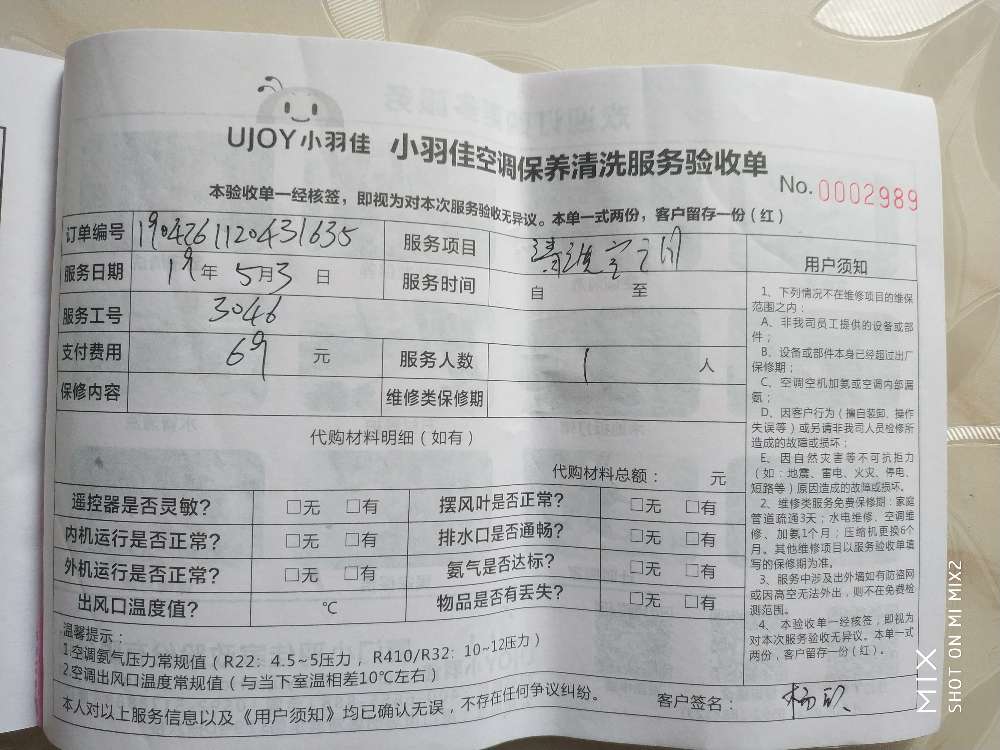 UJOY小羽佳 小羽佳空调保养清洗服务验收单
No.0002989
本验收单一经核签，即视为对本次服务验收无异议。本单一式两份，客户留存一份（红）
订单编号 1904261120431635 服务项目
服务日期 19年5月3日 服务时间 自 至
服务工号 3046
支付费用 69元 服务人数 1人
保修内容 维修类保修期
代购材料明细（如有）
代购材料总额： 元
遥控器是否灵敏？ □无 □有 摆风叶是否正常？ □无 □有
内机运行是否正常？ □无 □有 排水口是否通畅？ □无 □有
外机运行是否正常？ □无 □有 氨气是否达标？ □无 □有
出风口温度值？ ℃ 物品是否有丢失？ □无 □有
温馨提示：
1.空调氨气压力常规值（R22：4.5~5压力，R410/R32：10~12压力）
2.空调出风口温度常规值（与当下室温相差10℃左右）
本人对以上服务信息以及《用户须知》均已确认无误，不存在任何争议纠纷。 客户签名：杨
用户须知
1、下列情况不在维修项目的维保
范围之内：
A、非我司员工提供的设备或部
件；
B、设备或部件本身已经超过出厂
保修期；
C、空调空机加氨或空调内部漏
氨；
D、因客户行为（擅自装卸、操作
失误等）或另请非我司人员检修所
造成的故障或损坏；
E、因自然灾害等不可抗拒力
（如：地震、雷电、火灾、停电、
短路等）原因造成的故障或损坏。
2、维修类服务免费保修期：家庭
管道疏通3天；水电维修、空调维
修、加氨1个月；压缩机更换6个
月。其他维修项目以服务验收单填
写的保修期为准。
3、服务中涉及出外墙如有防盗网
或因高空无法外出，则不在免费检
测范围。
4、本验收单一经核签，即视为
对本次服务验收无异议。本单一式
两份，客户留存一份（红）。
MIX
SHOT ON MI MIX2